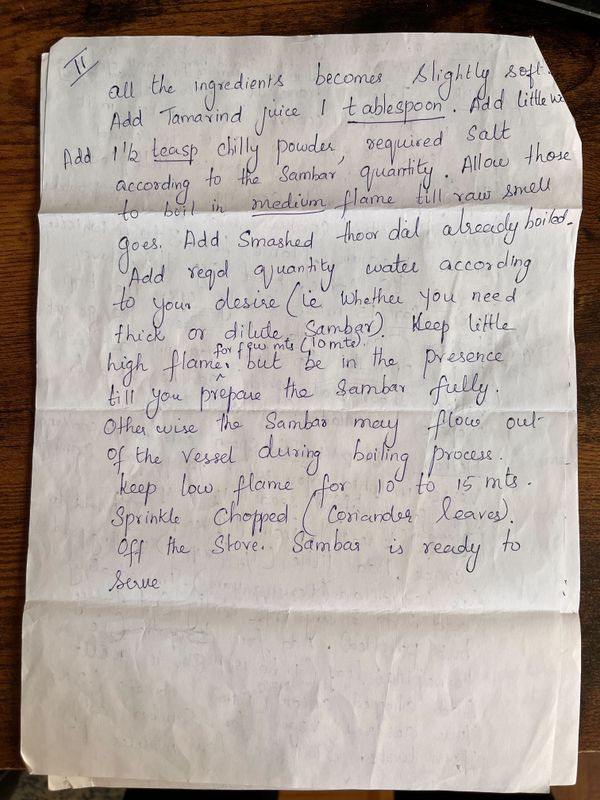 II
all the ingredients becomes slightly soft.
Add Tamarind juice 1 tablespoon. Add little
Add 1 1/2 teasp chilly powder, required salt
according to the Sambar quantity. Allow those
to boil in medium flame till raw smell
goes. Add Smashed thoor dal already boiled.
Add reqd quantity water according
to your desire (ie whether you need
thick or dilute Sambar). Keep little
for few mts (10 mts).
high flame. but be in the presence
till you prepare the Sambar fully.
Otherwise the Sambar may flow out
of the vessel during boiling process.
keep low flame for 10 to 15 mts.
Sprinkle Chopped (Coriander leaves).
Off the Stove. Sambar is ready to
serve